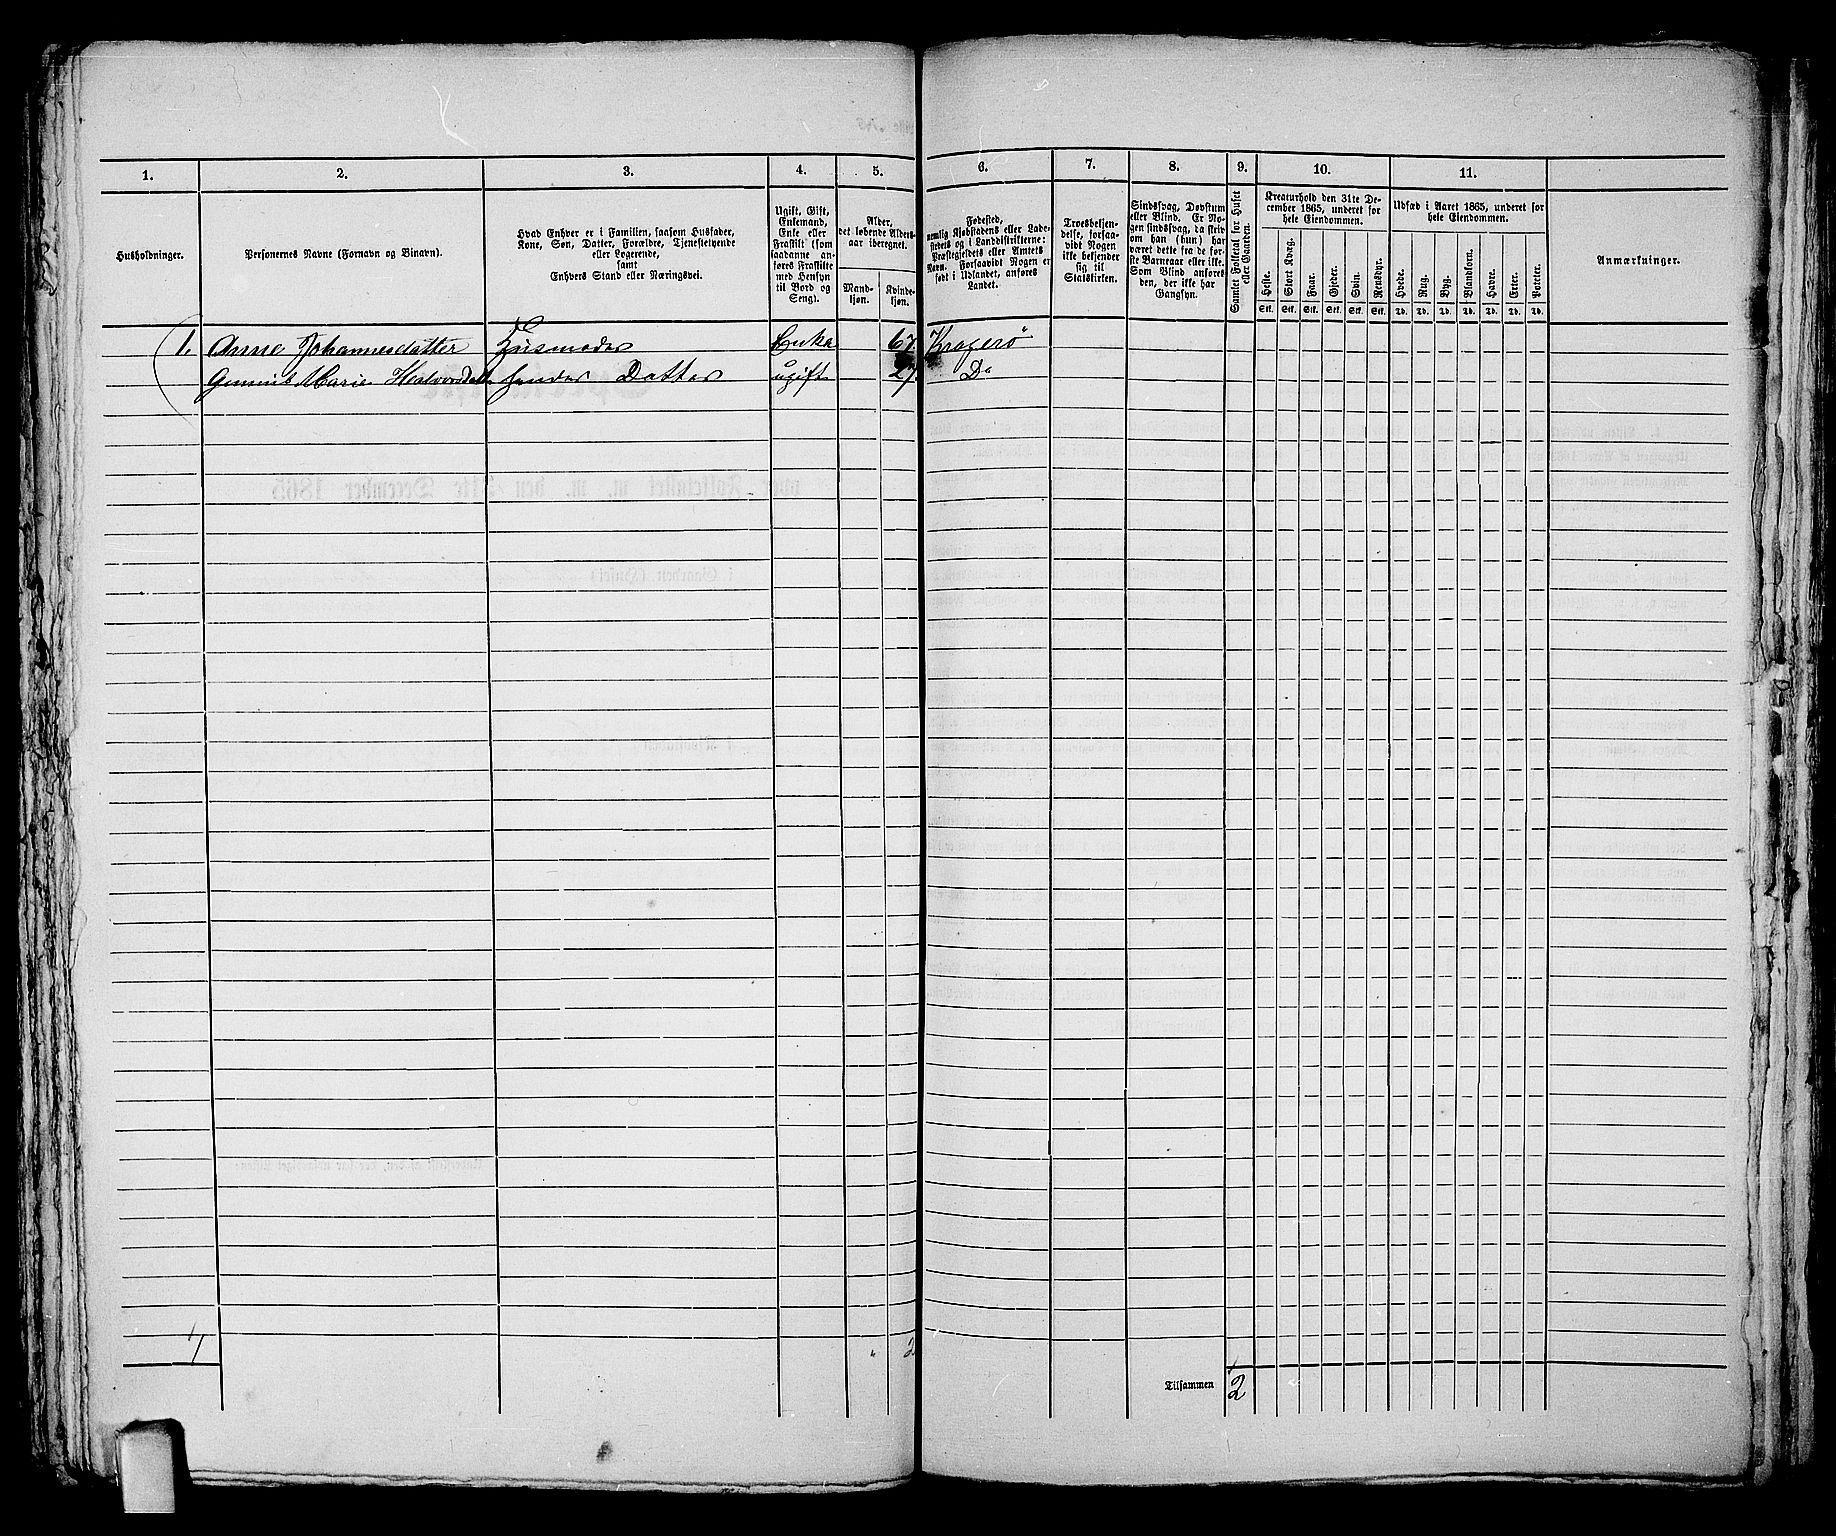 1. 2. 3. 4. 5. 6. 7. 8. 9. 10. 11.
Husholdninger.
Personernes Navne (Fornavn og Binavn).
Hvad Enhver er i Familien, saasom Husfader,
Kone, Søn, Datter, Forældre, Tjenestetyende
eller Logerende,
samt
Enhvers Stand eller Næringsvei.
Ugift, Gift,
Enkemand,
Enke eller
Fraskilt (som
saadanne an-
føres Fraskilte
med Hensyn
til Bord og
Seng).
Alder,
det løbende Alders-
aar iberegnet.
Mand-
kjøn.
Kvinde-
kjøn.
Fødested,
nemlig Kjøbstadens eller Lade-
stedets og i Landdistrikterne:
Præstegjeldets eller Amtets
Navn. Forsaavidt Nogen er
født i Udlandet, anføres
Landet.
Troesbekjen-
delse, forsaa-
vidt Nogen
ikke bekjender
sig til
Statskirken.
Sindssvag, Døvstum
eller Blind. Er No-
gen sindssvag, da skriv
om han (hun) har
været dette fra de før-
ste Barneaar eller ikke.
Som Blind anføres
den, der ikke har
Gangsyn.
Samlet Folketal for Huset
eller Gaarden.
Kreaturhold den 31te De-
cember 1865, underet for
hele Eiendommen.
Heste.
Stort Kvæg.
Faar.
Gjeder.
Svin.
Rensdyr.
Stk. Stk. Stk. Stk. Stk. Stk.
Udsæd i Aaret 1865, underet for
hele Eiendommen.
Hvede.
Rug.
Byg.
Blandkorn.
Havre.
Erter.
Poteter.
Td. Td. Td. Td. Td. Td. Td.
Anmærkninger.
1. Anne Johannesdatter Husmoder Enke 67 Kragerø
Marie hendes Datter ugift 27 Do
1 " 2
Tilsammen 2